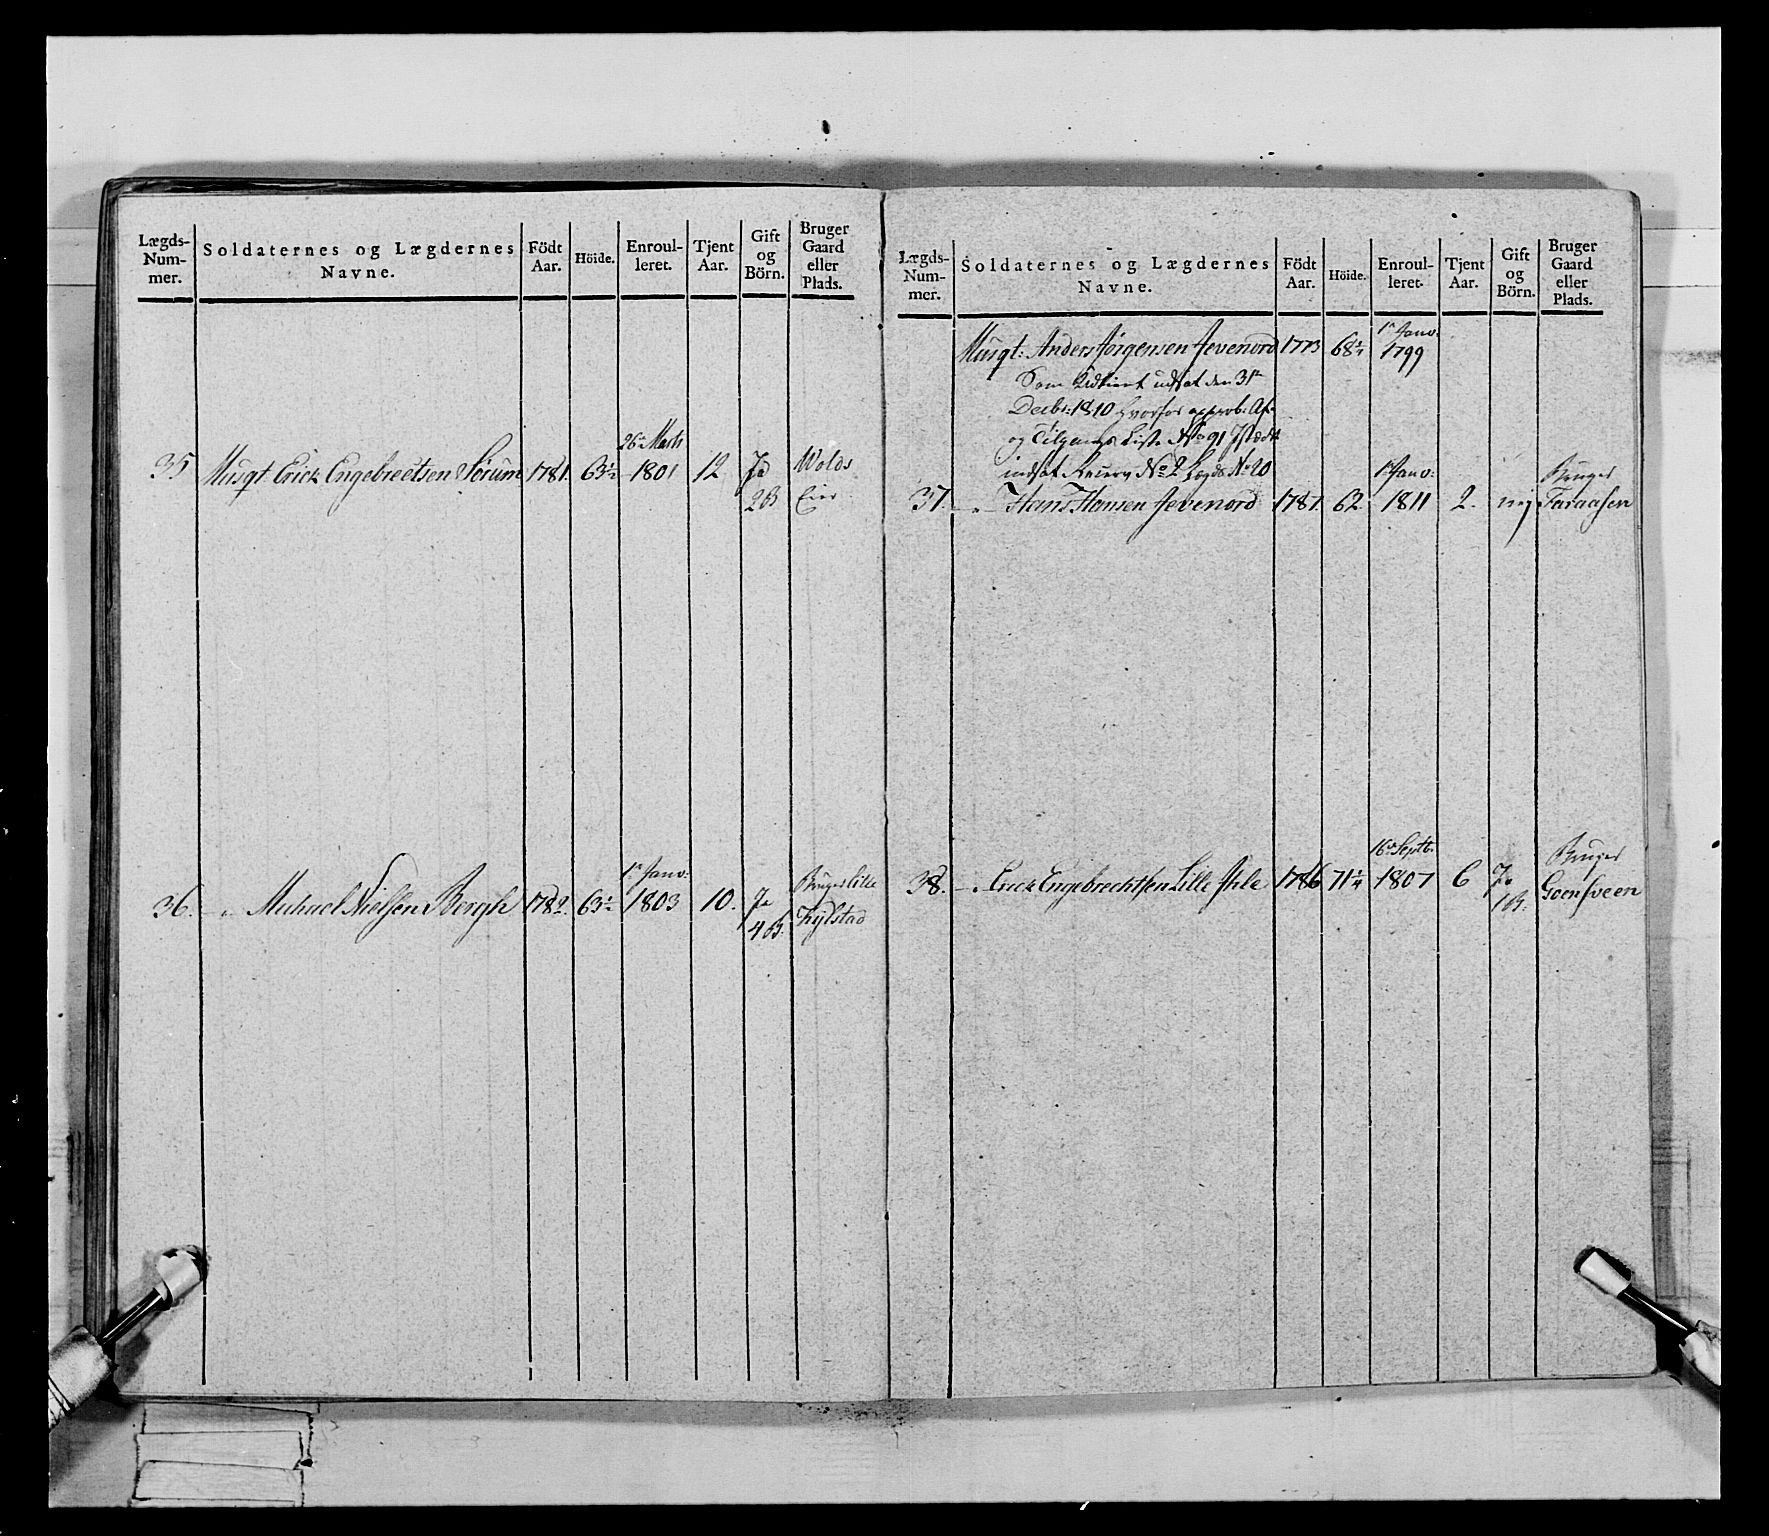 Lægds-
Num-
mer.
Soldaternes og Lægdernes
Navne.
Födt
Aar.
Höide.
Enroul-
leret.
Tjent
Aar.
Gift
og
Börn.
Bruger
Gaard
eller
Plads.
26de Marti
35 Musqt: Erick Engebreetsen Sørum 1781. 63½ 1801 12 Ja Wolds
2 B Eier
1te Janv: Bruger Lille
36. — " Michael Nielsen Bergh 1782. 63½ 1803 10. Ja
4 B: Kylstad
Lægds-
Num-
mer.
Soldaternes og Lægdernes
Navne.
Födt
Aar.
Höide.
Enroul-
leret.
Tjent
Aar.
Gift
og
Börn.
Bruger
Gaard
eller
Plads.
1te Janv:
Musqt: Anders Jørgensen Jevenord 1773 68¼ 1799
Som udtient udsat den 31te
Decbr: 1810 hvorfor approb: Af-
og Tilgangs Liste No 91 Istædt
indsat Reserv No 2 Lægds No 20 1te Janv: Bruger
37. — " Hans Hansen Jevenord 1787. 62 1811 2. nej Faraasen
16de Septbr: Bruger
38. — " Erick Engebrechtsen Lille Ihle 1786 71¼ 1807 6 Ja Goensveen
1 B: